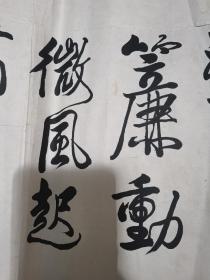 簾動
微風起